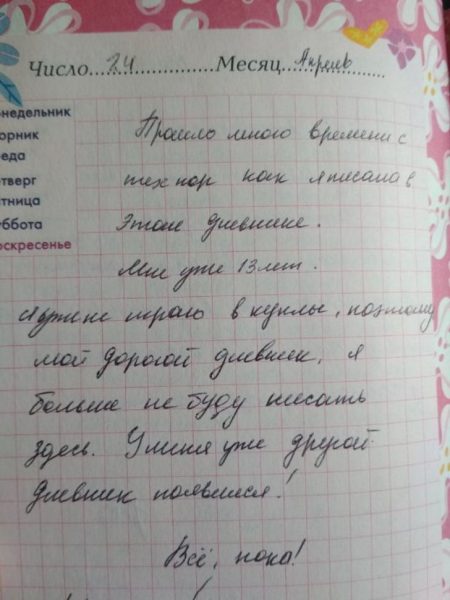 Число....24....................Месяц...Апрель......
онедельник
орник
еда
тверг
тница
ббота
оскресенье
Прошло много времени с
тех пор как я писала в
этом дневнике.
Мне уже 13 лет.
я уже не играю в куклы, поэтому
мой дорогой дневник, я
больше не буду писать
здесь. У меня уже другой
дневник появился!
Всё, пока!